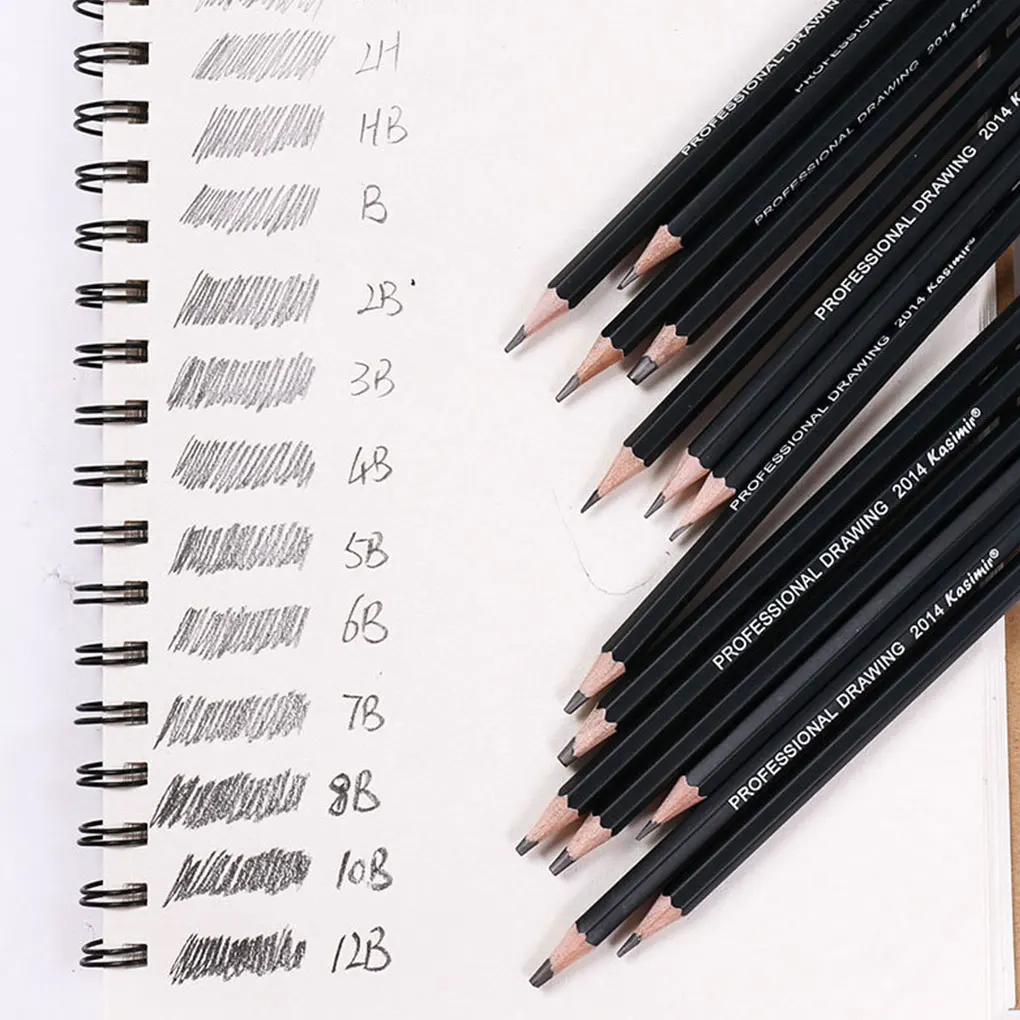 2H
HB
B
2B
3B
4B
5B
6B
7B
8B
10B
12B
PROFESSIONAL DRAWING
PROFESSIONAL
PROFESSIONAL DRAWING 2014 Kasimir
PROFESSIONAL DRAWING 2014 Kasimir
PROFESSIONAL DRAWING 2014 Kasimir®
PROFESSIONAL DRAWING 2014 Kasimir®
PROFESSIONAL DRAWING 2014 Kasimir®